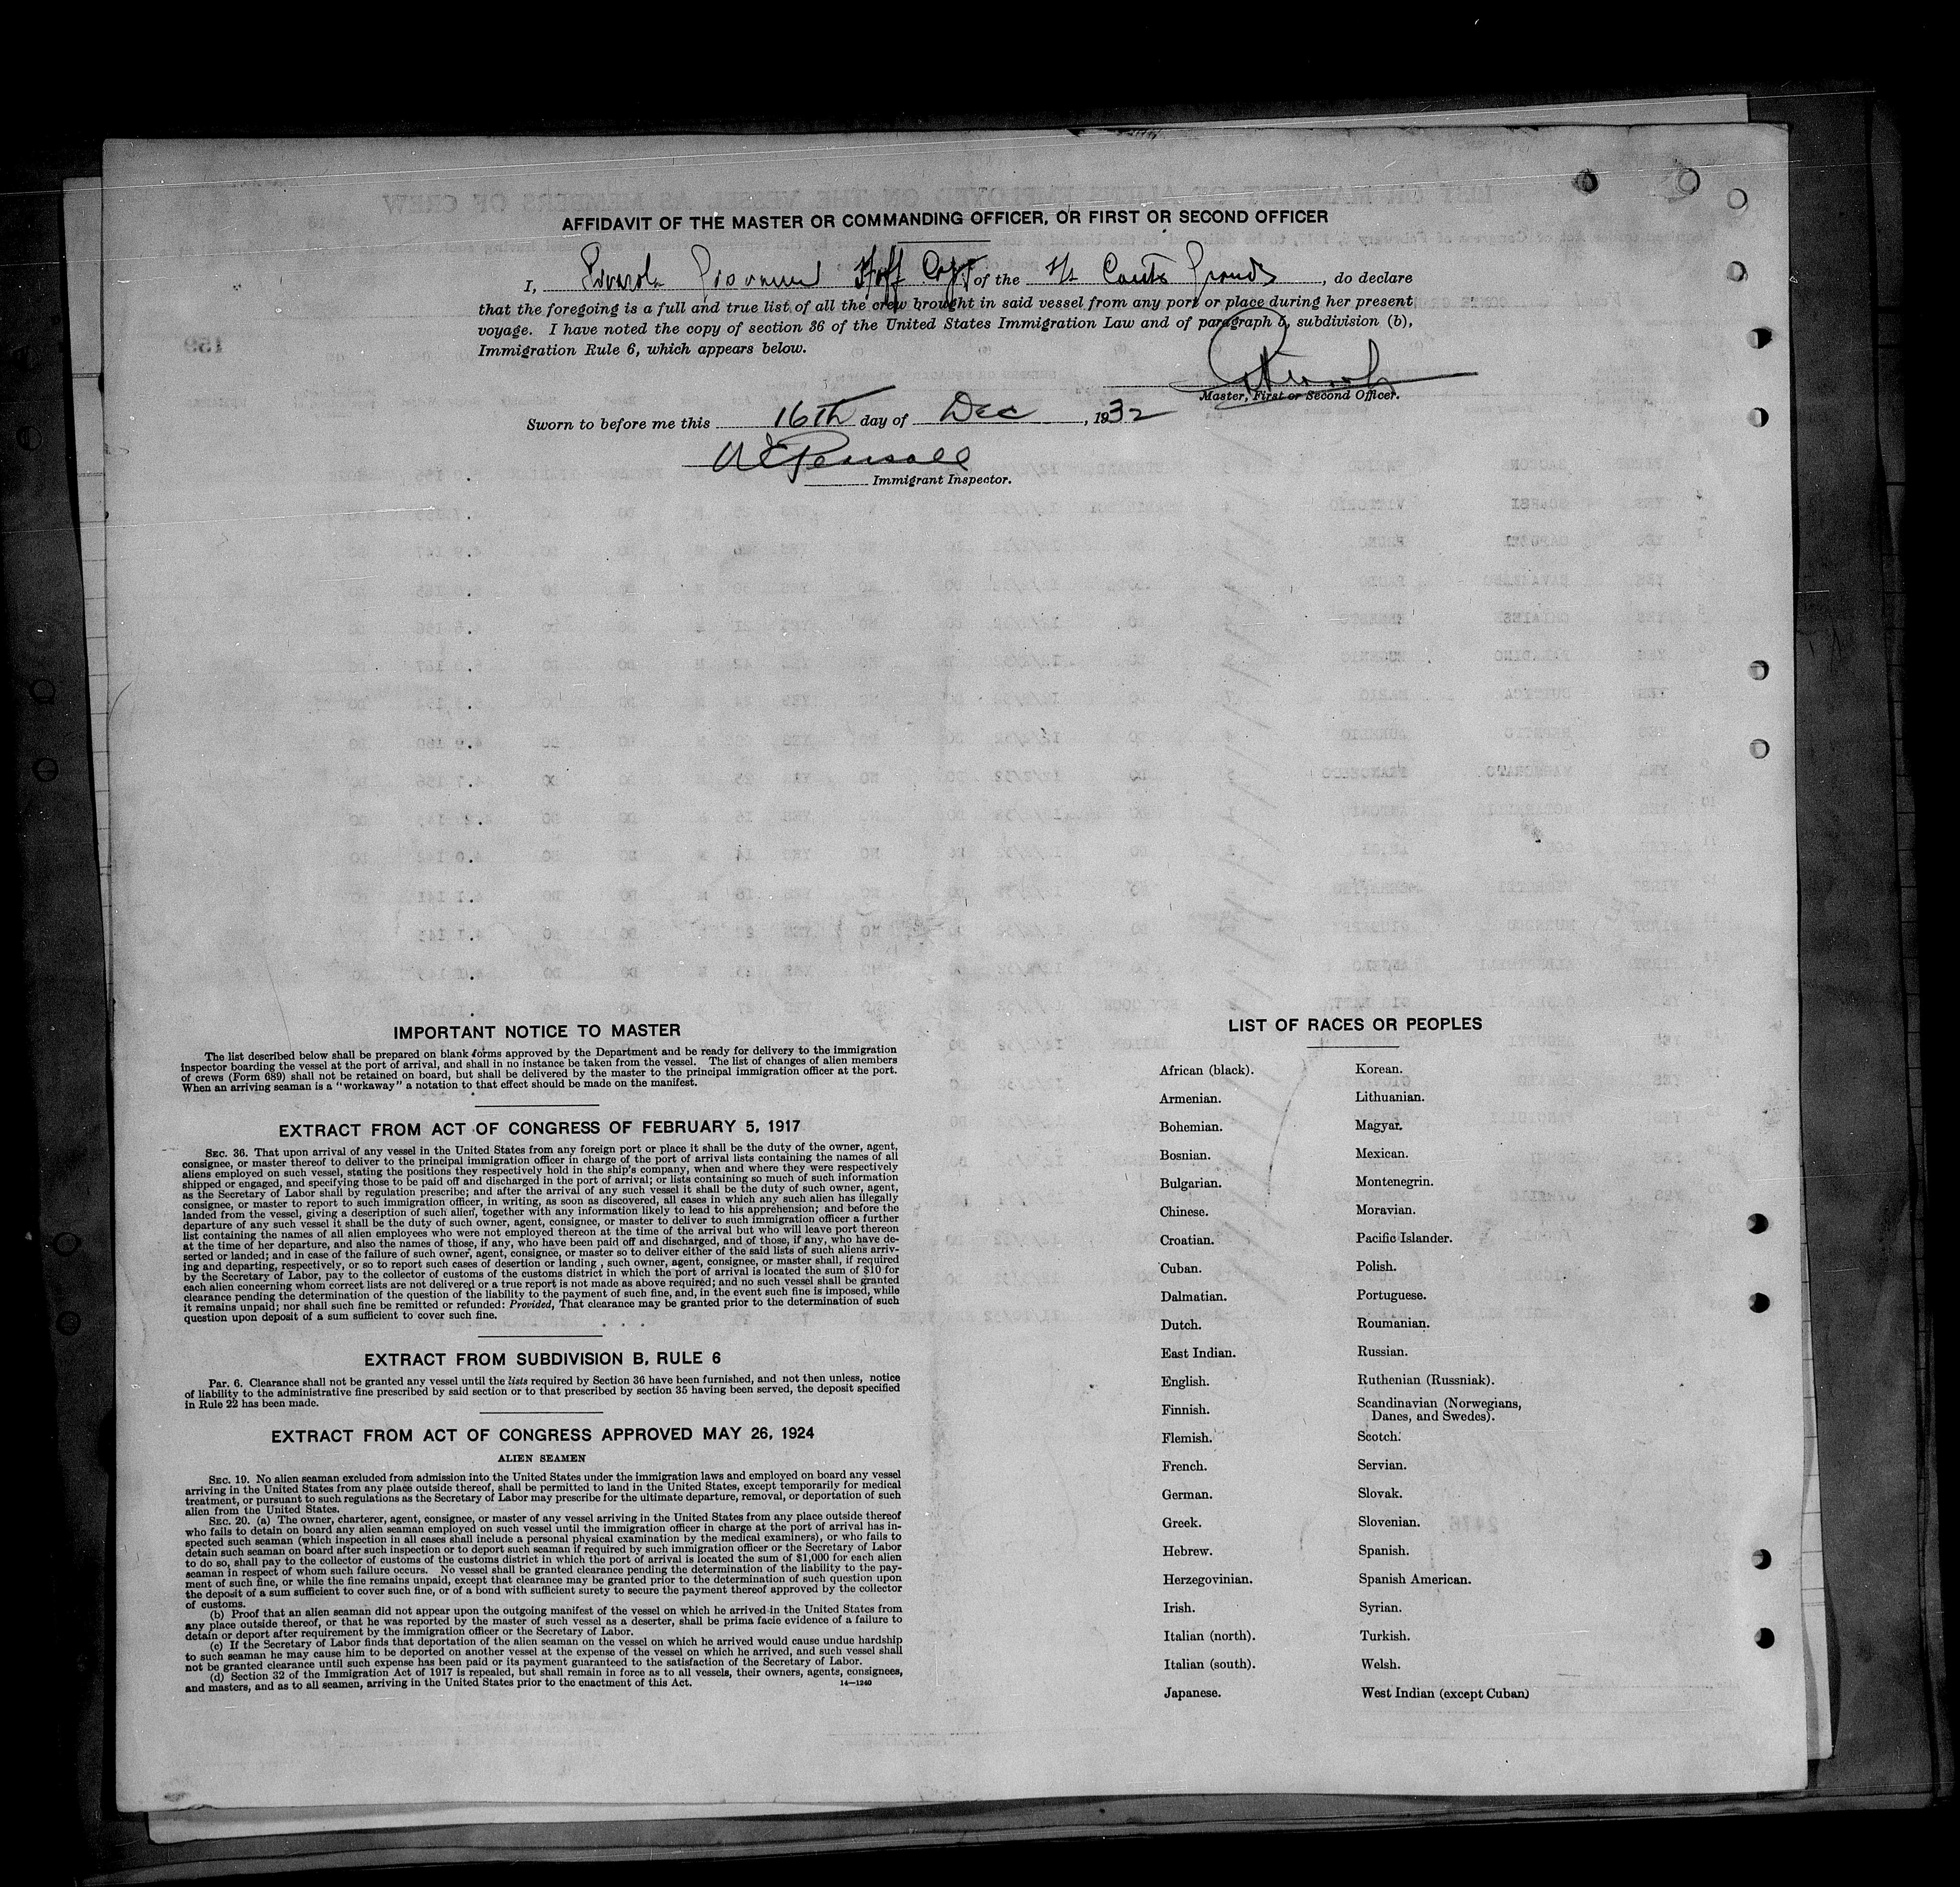 AFFIDAVIT OF THE MASTER OR COMMANDING OFFICER, OR FIRST OR SECOND OFFICER
I, Giovanni Staff Capt of the S/s Conte Grande, do declare
that the foregoing is a full and true list of all the crew brought in said vessel from any port or place during her present
voyage. I have noted the copy of section 36 of the United States Immigration Law and of paragraph 5, subdivision (b),
Immigration Rule 6, which appears below.
Master, First or Second Officer.
Sworn to before me this 16th day of Dec, 1932
Immigrant Inspector.
IMPORTANT NOTICE TO MASTER
The list described below shall be prepared on blank forms approved by the Department and be ready for delivery to the immigration
inspector boarding the vessel at the port of arrival, and shall in no instance be taken from the vessel. The list of changes of alien members
of crews (Form 689) shall not be retained on board, but shall be delivered by the master to the principal immigration officer at the port.
When an arriving seaman is a "workaway" a notation to that effect should be made on the manifest.
EXTRACT FROM ACT OF CONGRESS OF FEBRUARY 5, 1917
SEC. 36. That upon arrival of any vessel in the United States from any foreign port or place it shall be the duty of the owner, agent,
consignee, or master thereof to deliver to the principal immigration officer in charge of the port of arrival lists containing the names of all
aliens employed on such vessel, stating the positions they respectively hold in the ship's company, when and where they were respectively
shipped or engaged, and specifying those to be paid off and discharged in the port of arrival; or lists containing so much of such information
as the Secretary of Labor shall by regulation prescribe; and after the arrival of any such vessel it shall be the duty of such owner, agent,
consignee, or master to report to such immigration officer, in writing, as soon as discovered, all cases in which any such alien has illegally
landed from the vessel, giving a description of such alien, together with any information likely to lead to his apprehension; and before the
departure of any such vessel it shall be the duty of such owner, agent, consignee, or master to deliver to such immigration officer a further
list containing the names of all alien employees who were not employed thereon at the time of the arrival but who will leave port thereon
at the time of her departure, and also the names of those, if any, who have been paid off and discharged, and of those, if any, who have de-
serted or landed; and in case of the failure of such owner, agent, consignee, or master so to deliver either of the said lists of such aliens arriv-
ing and departing, respectively, or so to report such cases of desertion or landing, such owner, agent, consignee, or master shall, if required
by the Secretary of Labor, pay to the collector of customs of the customs district in which the port of arrival is located the sum of $10 for
each alien concerning whom correct lists are not delivered or a true report is not made as above required; and no such vessel shall be granted
clearance pending the determination of the question of the liability to the payment of such fine, and, in the event such fine is imposed, while
it remains unpaid; nor shall such fine be remitted or refunded: Provided, That clearance may be granted prior to the determination of such
question upon deposit of a sum sufficient to cover such fine.
EXTRACT FROM SUBDIVISION B, RULE 6
Par. 6. Clearance shall not be granted any vessel until the lists required by Section 36 have been furnished, and not then unless, notice
of liability to the administrative fine prescribed by said section or to that prescribed by section 35 having been served, the deposit specified
in Rule 22 has been made.
EXTRACT FROM ACT OF CONGRESS APPROVED MAY 26, 1924
ALIEN SEAMEN
SEC. 19. No alien seaman excluded from admission into the United States under the immigration laws and employed on board any vessel
arriving in the United States from any place outside thereof, shall be permitted to land in the United States, except temporarily for medical
treatment, or pursuant to such regulations as the Secretary of Labor may prescribe for the ultimate departure, removal, or deportation of such
alien from the United States.
SEC. 20. (a) The owner, charterer, agent, consignee, or master of any vessel arriving in the United States from any place outside thereof
who fails to detain on board any alien seaman employed on such vessel until the immigration officer in charge at the port of arrival has in-
spected such seaman (which inspection in all cases shall include a personal physical examination by the medical examiners), or who fails to
detain such seaman on board after such inspection or to deport such seaman if required by such immigration officer or the Secretary of Labor
to do so, shall pay to the collector of customs of the customs district in which the port of arrival is located the sum of $1,000 for each alien
seaman in respect of whom such failure occurs. No vessel shall be granted clearance pending the determination of the liability to the pay-
ment of such fine, or while the fine remains unpaid, except that clearance may be granted prior to the determination of such question upon
the deposit of a sum sufficient to cover such fine, or of a bond with sufficient surety to secure the payment thereof approved by the collector
of customs.
(b) Proof that an alien seaman did not appear upon the outgoing manifest of the vessel on which he arrived in the United States from
any place outside thereof, or that he was reported by the master of such vessel as a deserter, shall be prima facie evidence of a failure to
detain or deport after requirement by the immigration officer or the Secretary of Labor.
(c) If the Secretary of Labor finds that deportation of the alien seaman on the vessel on which he arrived would cause undue hardship
to such seaman he may cause him to be deported on another vessel at the expense of the vessel on which he arrived, and such vessel shall
not be granted clearance until such expense has been paid or its payment guaranteed to the satisfaction of the Secretary of Labor.
(d) Section 32 of the Immigration Act of 1917 is repealed, but shall remain in force as to all vessels, their owners, agents, consignees,
and masters, and as to all seamen, arriving in the United States prior to the enactment of this Act.
14—1240
LIST OF RACES OR PEOPLES
African (black).
Armenian.
Bohemian.
Bosnian.
Bulgarian.
Chinese.
Croatian.
Cuban.
Dalmatian.
Dutch.
East Indian.
English.
Finnish.
Flemish.
French.
German.
Greek.
Hebrew.
Herzegovinian.
Irish.
Italian (north).
Italian (south).
Japanese.
Korean.
Lithuanian.
Magyar.
Mexican.
Montenegrin.
Moravian.
Pacific Islander.
Polish.
Portuguese.
Roumanian.
Russian.
Ruthenian (Russniak).
Scandinavian (Norwegians,
Danes, and Swedes).
Scotch.
Servian.
Slovak.
Slovenian.
Spanish.
Spanish American.
Syrian.
Turkish.
Welsh.
West Indian (except Cuban)